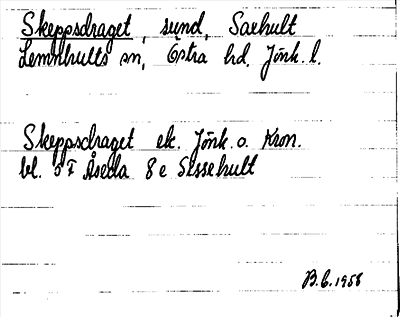 Skeppsdraget, sund, Saxhult
Lemnhults sn, Östra hd. Jönk. l.
Skeppsdraget ek. Jönk. o. Kron.
bl. 5 F Åseda 8 e Sissehult
B.C. 1958